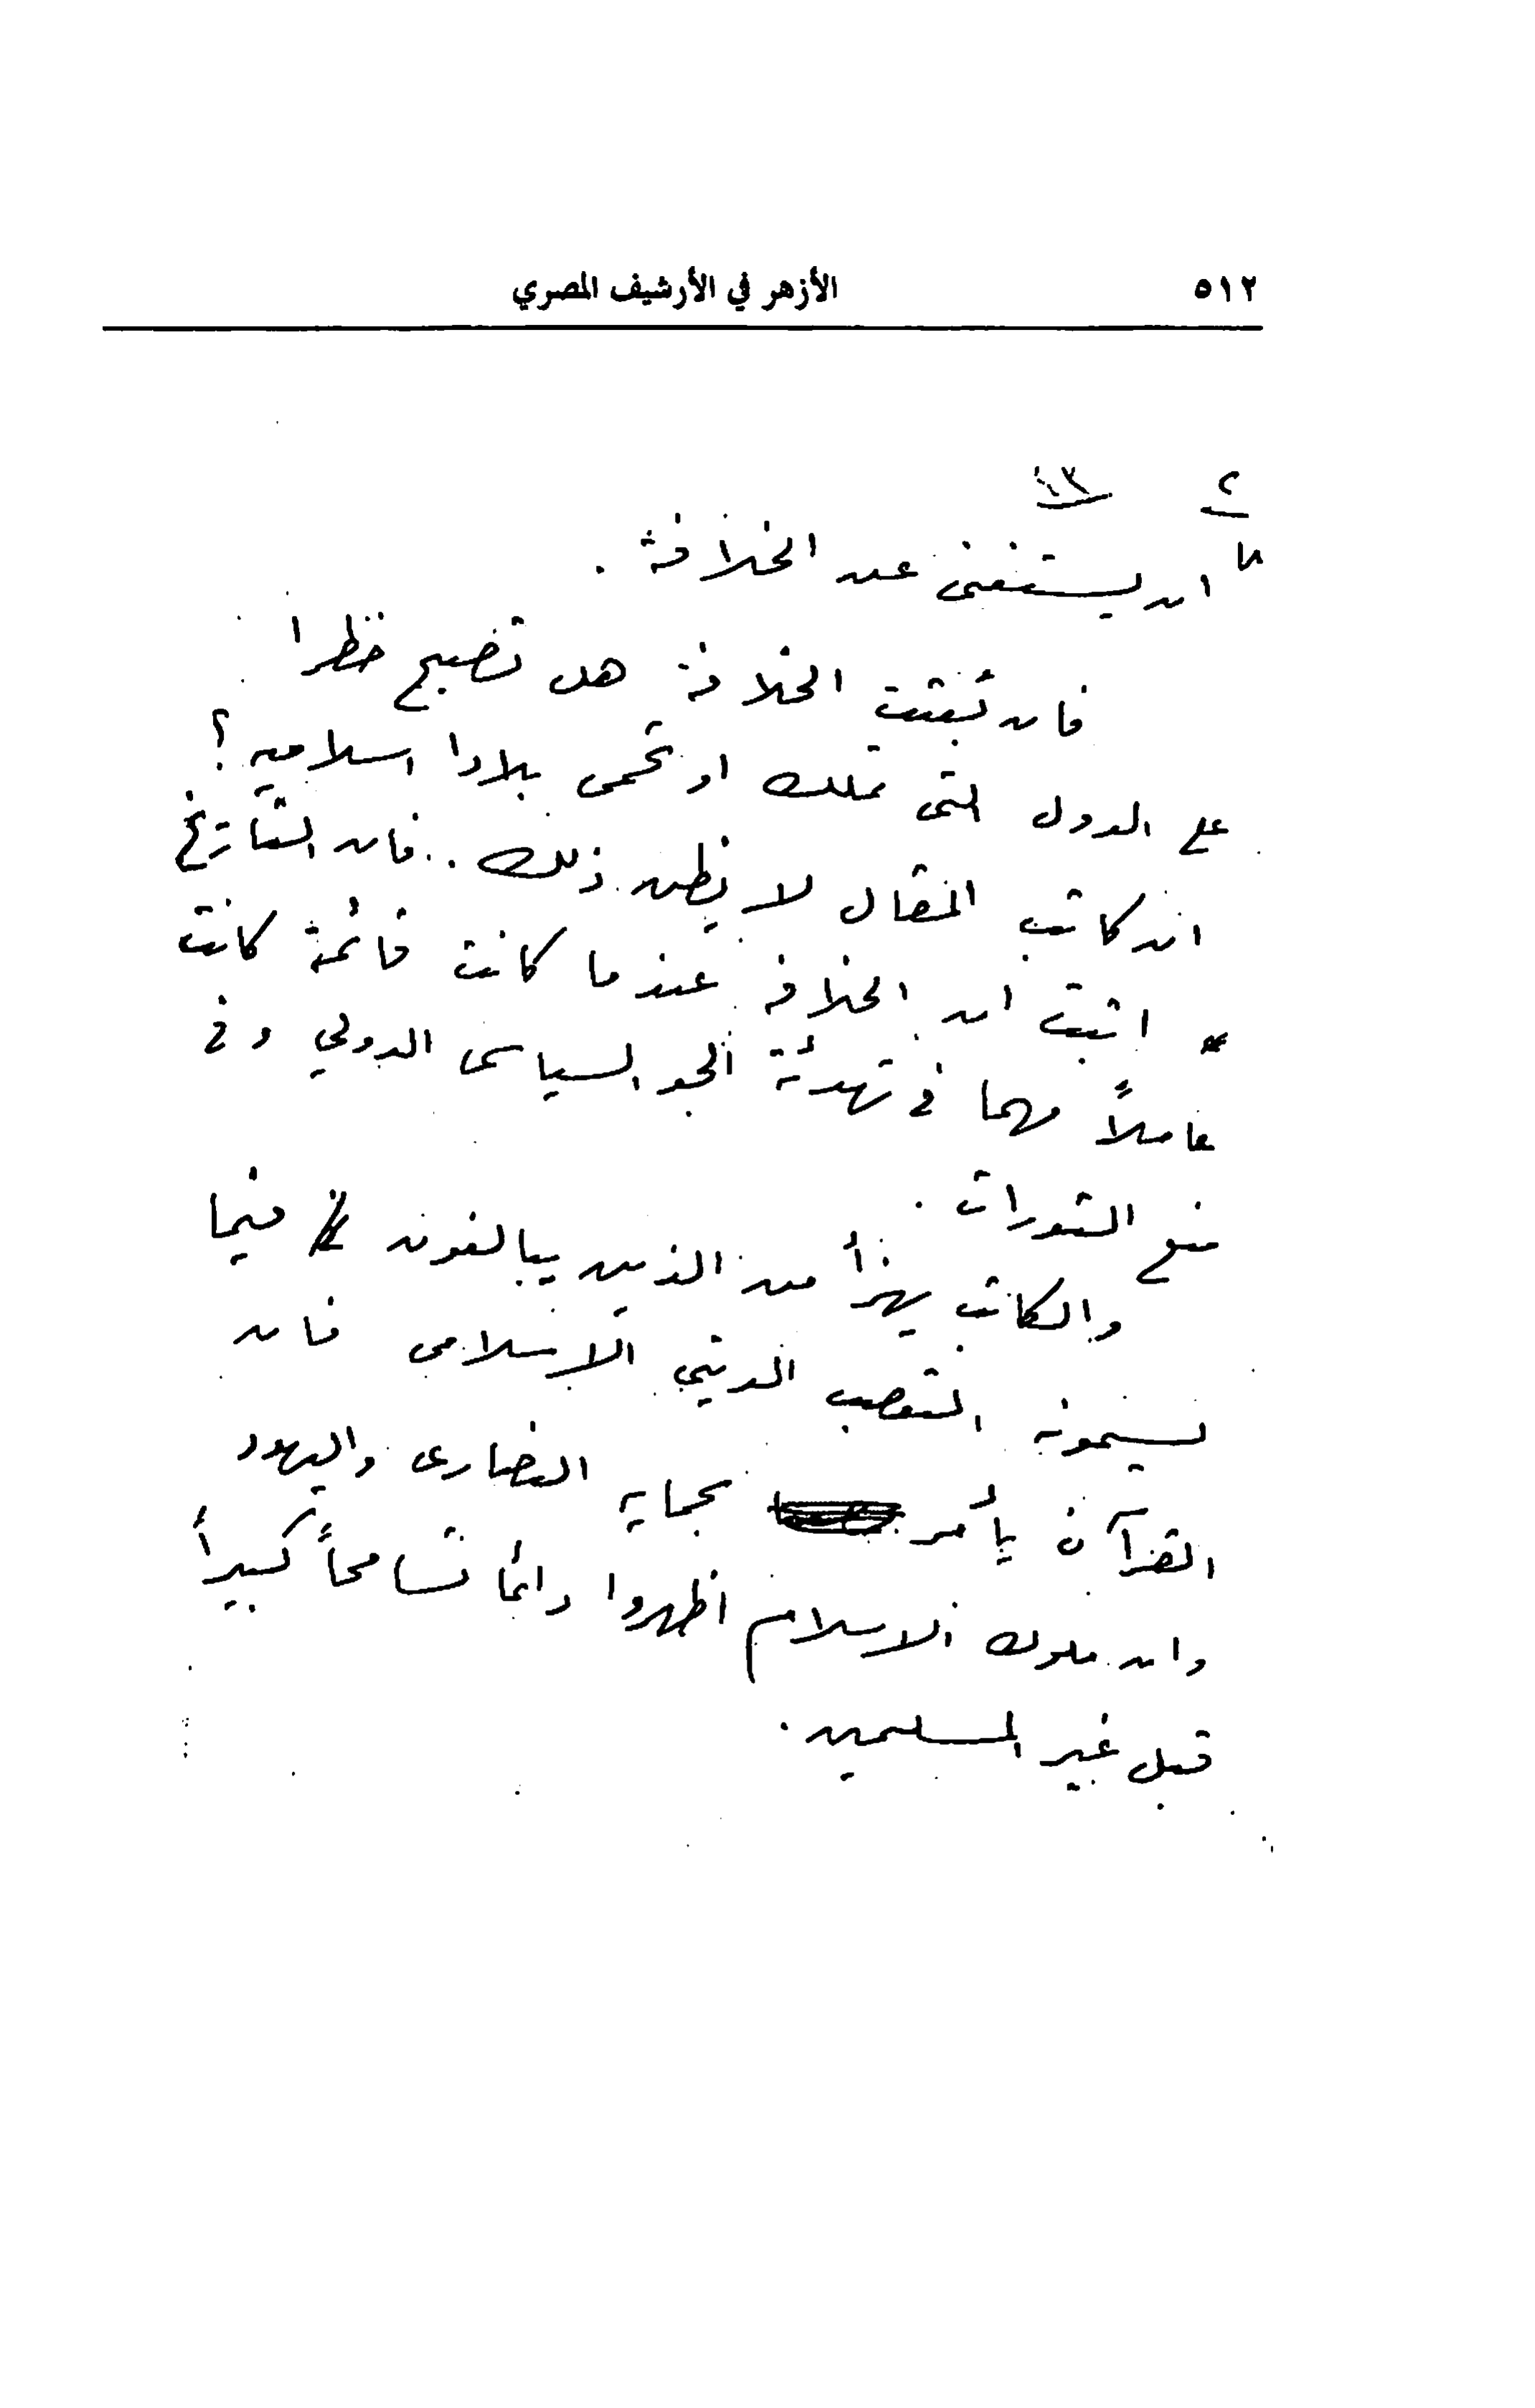 ٥١٢
الأزهر في الأرشيف المصري
٢
١٣
ان يستغنى عن الخلافة .
فان بُعثت الخلافة هل تصبح خطرا
على الدول التى تملك او تحمى بلادا اسلامية ؟
ان كاتب المقال لا يظن ذلك . فان التاريخ
اثبت ان الخلافة عندما كانت قائمة كانت
عاملاً مهما في تهدئة الجو السياسى الدولي وفى
منع الثورات .
والكاتب يهزأ من الذين يبالغون فيما
يسمونه التعصب الديني الاسلامى فان
القرآن يأمر بحماية النصارى واليهود
وان ملوك الاسلام اظهروا دائما تسامحاً كبيراً
قبل غير المسلمين .